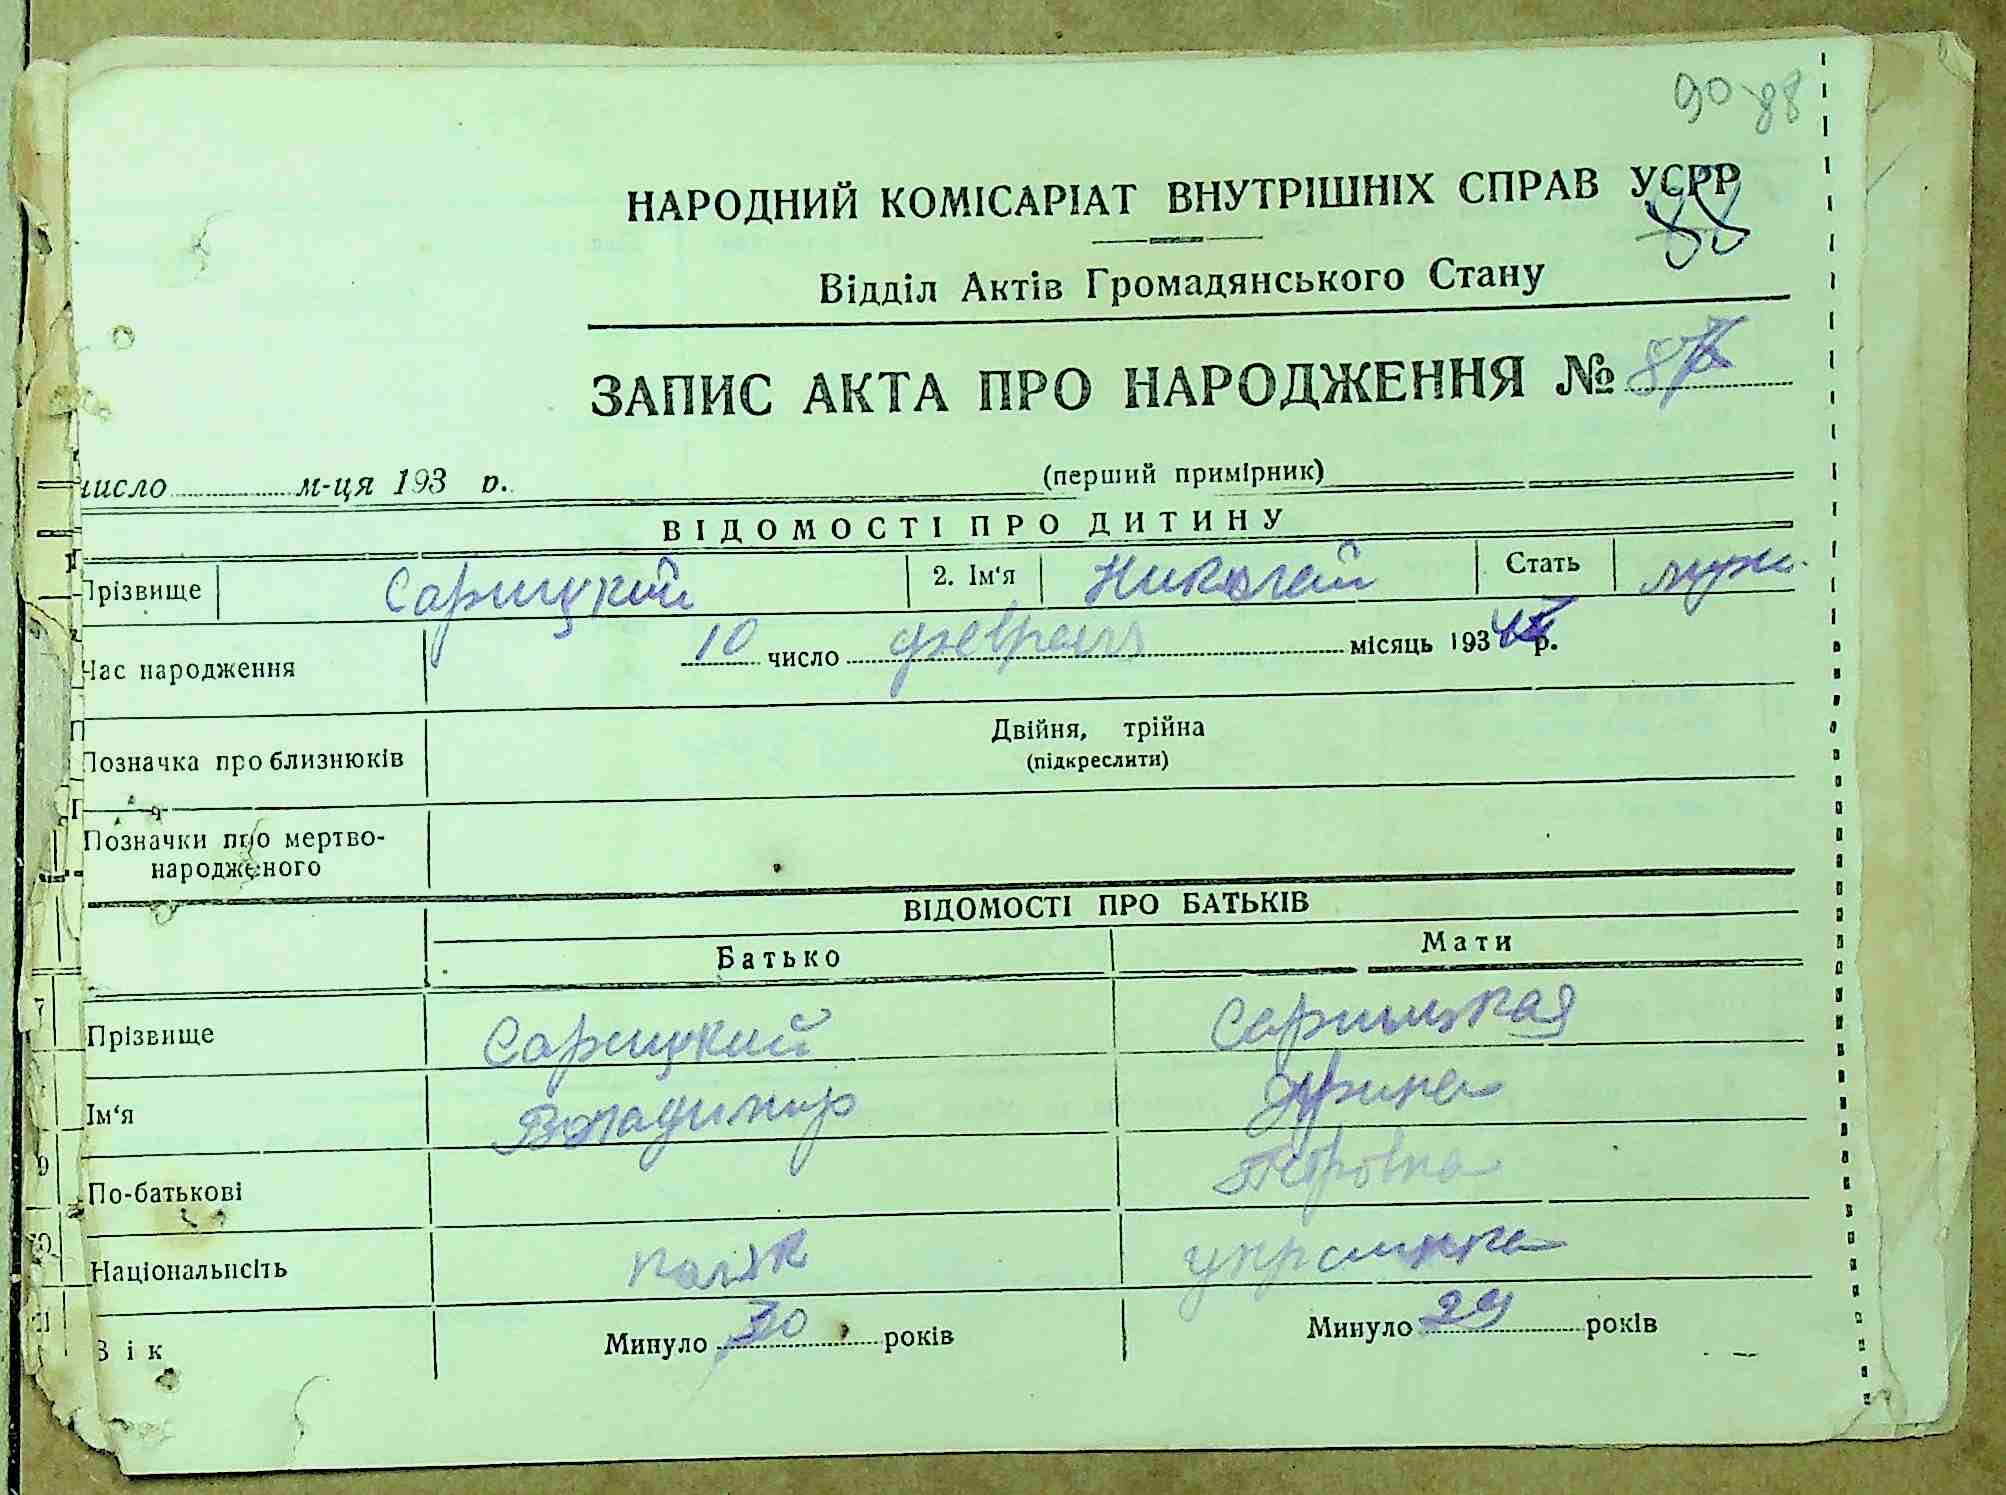 90 88
НАРОДНИЙ КОМІСАРІАТ ВНУТРІШНІХ СПРАВ УСРР
88
Відділ Актів Громадянського Стану
ЗАПИС АКТА ПРО НАРОДЖЕННЯ № 87
число м-ця 193 р. (перший примірник)
ВІДОМОСТІ ПРО ДИТИНУ
Прізвище Сарицкий 2. Ім'я Николай Стать муж.
Час народження 10 число февраль місяць 193 р.
Позначка про близнюків Двійня, трійна
(підкреслити)
Позначки про мертво-
народженого
ВІДОМОСТІ ПРО БАТЬКІВ
Батько Мати
7 Прізвище Сарицкий Сарицкая
Ім'я Владимир Ярина
9 По-батькові Петровна
10 Національність поляк украинка
11 Вік Минуло 30 років Минуло 29 років